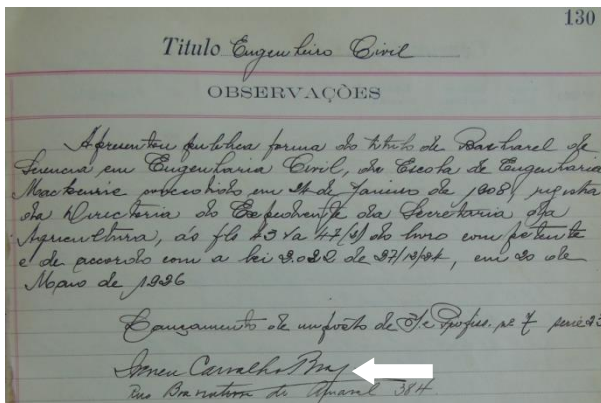 130
Titulo Engenheiro Civil
OBSERVAÇÕES
Apresentou publica forma do titulo de Bacharel de
Sciencia em Engenharia Civil, da Escola de Engenharia
Mackenzie concedido em 24 de Janeiro de 908,
da Directoria do Expediente da Secretaria da
Agricultura, ás fls 43 47 do livro competente
e de accordo com a lei 2.022 de 27/12/924, em 20 de
Maio de 1926
Lançamento de imposto de Profiss. nº 7 serie
Carvalho Braz
Rua Amaral 384